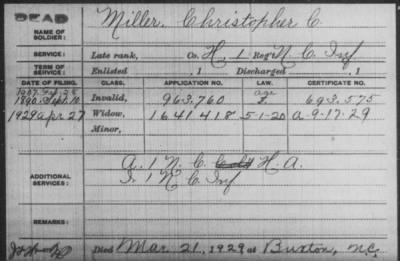 DEAD
NAME OF SOLDIER: Miller, Christopher C.
SERVICE: Late rank, Co. H, 1 Reg't N C Inf
TERM OF SERVICE: Enlisted , 1 Discharged , 1
DATE OF FILING. CLASS. APPLICATION NO. LAW. CERTIFICATE NO.
1907 Feb 28 age
1890 Sept. 10 Invalid, 963.760 693.575
1929 apr 27 Widow, 1641418 5-1-20 a-9-17-29
Minor,
ADDITIONAL SERVICES: A. 1 N. C. H. A.
I. 1 N C Inf
REMARKS:
Died Mar. 21, 1929 at Buxton, N.C.